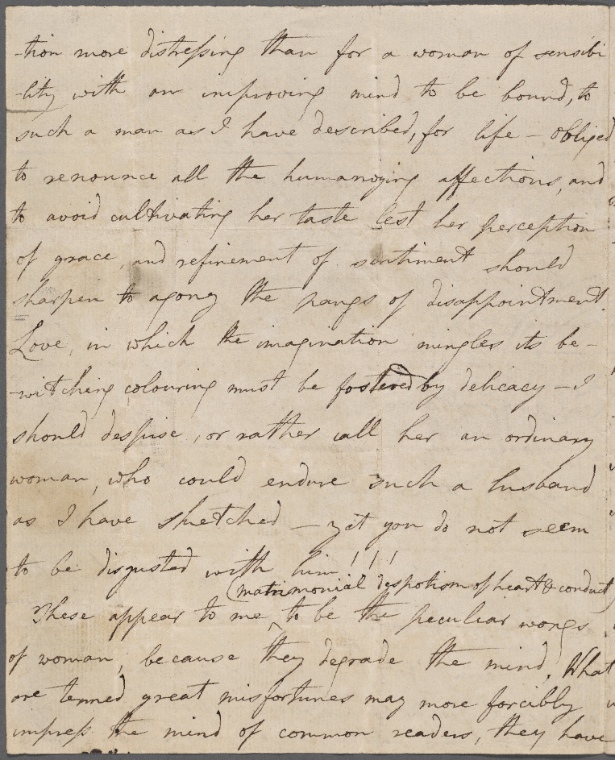 -tion more distressing than for a woman of sensibi
-lity with an improving mind to be bound, to
such a man as I have described, for life – obliged
to renounce all the humanizing affections, and
to avoid cultivating her taste lest her perception
of grace, and refinement of sentiment should
sharpen to agony the pangs of disappointment.
Love, in which the imagination mingles its be-
-witching colouring must be fostered by delicacy – I
should despise, or rather call her an ordinary
woman, who could endure such a husband
as I have sketched – yet you do not seem
to be disgusted with him!!!
(matrimonial despotism of heart & conduct
These appear to me ^ to be the peculiar wrongs
of woman, because they degrade the mind. What
are termed great misfortunes may more forcibly
impress the mind of common readers, they have